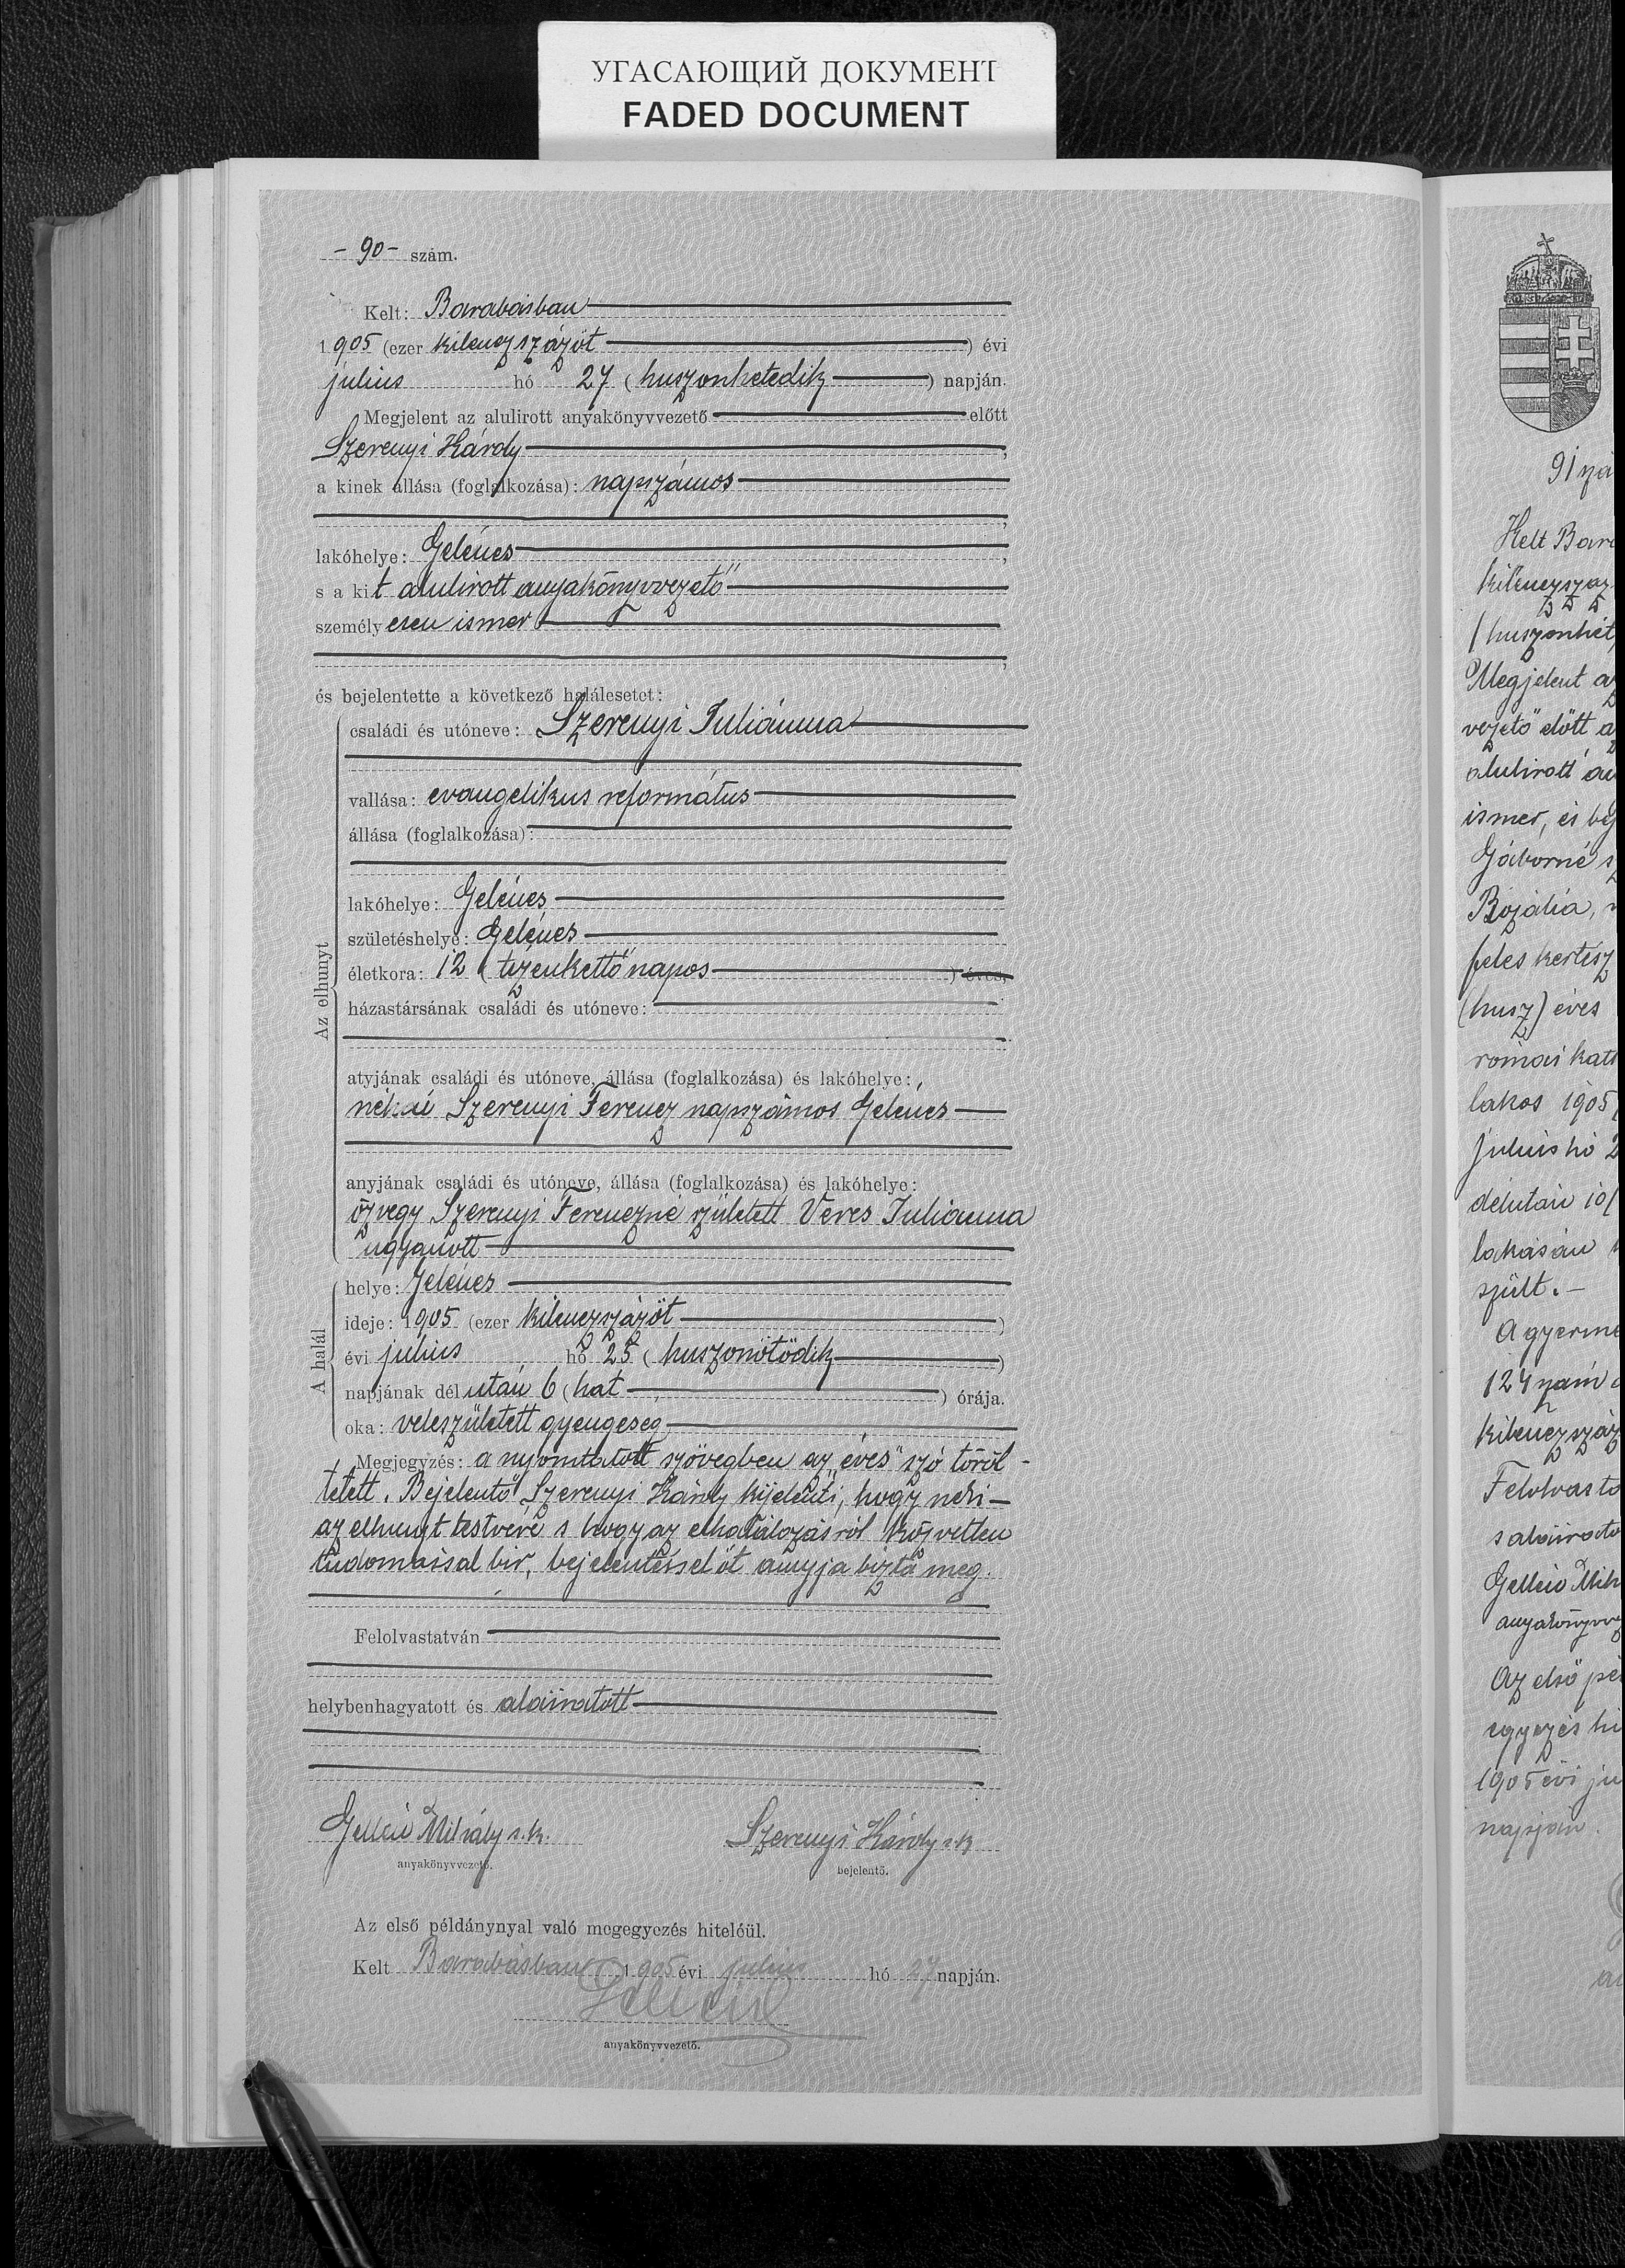 УГАСАЮЩИЙ ДОКУМЕНТ
FADED DOCUMENT
- 90 - szám.
Kelt: Barabásban
1905 (ezer kilenczszázöt) évi
július hó 27 (huszonhetedik) napján.
Megjelent az alulirott anyakönyvvezető előtt
Szerenyi Károly,
a kinek állása (foglalkozása): napszámos
lakóhelye: Gelénes,
s a kit alulirott anyakönyvvezető
személyesen ismer
és bejelentette a következő halálesetet:
Az elhunyt
családi és utóneve: Szerenyi Juliánna
vallása: evangelikus református
állása (foglalkozása):
lakóhelye: Gelénes
születéshelye: Gelénes
életkora: 12 (tizenkettő napos) éves,
házastársának családi és utóneve:
atyjának családi és utóneve, állása (foglalkozása) és lakóhelye:
néhai Szerenyi Ferencz napszámos Gelenes
anyjának családi és utóneve, állása (foglalkozása) és lakóhelye:
özvegy Szerenyi Ferenczné született Veres Juliánna
ugyanott
A halál
helye: Gelénes
ideje: 1905 (ezer kilenczszázöt)
évi július hó 25 (huszonötödik)
napjának délután 6 (hat) órája.
oka: veleszületett gyengeség
Megjegyzés: a nyomtatott szövegben az „éves" szó töröl-
tetett. Bejelentő Szerenyi Károly kijelenti, hogy neki
az elhunyt testvére s hogy az elhalálozásról közvetlen
tudomással bir, bejelentéssel őt anyja bizta meg.
Felolvastatván
helybenhagyatott és aláiratott
Gellén Mihály s.k.
anyakönyvvezető.
Szerenyi Károly s.k
bejelentő.
Az első példánynyal való megegyezés hiteléül.
Kelt Barabásban 1905 évi július hó 27 napján.
Gellén
anyakönyvvezető.
91 szá
Kelt Bara
kilenczszáz
(huszonhet
Megjelent a
vezető előtt a
alulirott an
ismer, és bej
Gáborné s
Rozália,
feles kertész
(husz) éves
római kath
lakos 1905
julius hó 2
délután 10 (
lakásán
szült.-
A gyerme
124 szám
kilenczszáz
Felolvasta
s aláirato
Gellén Mih
anyakönyvvez
Az első pé
egyezés hi
1905 évi ju
napján.